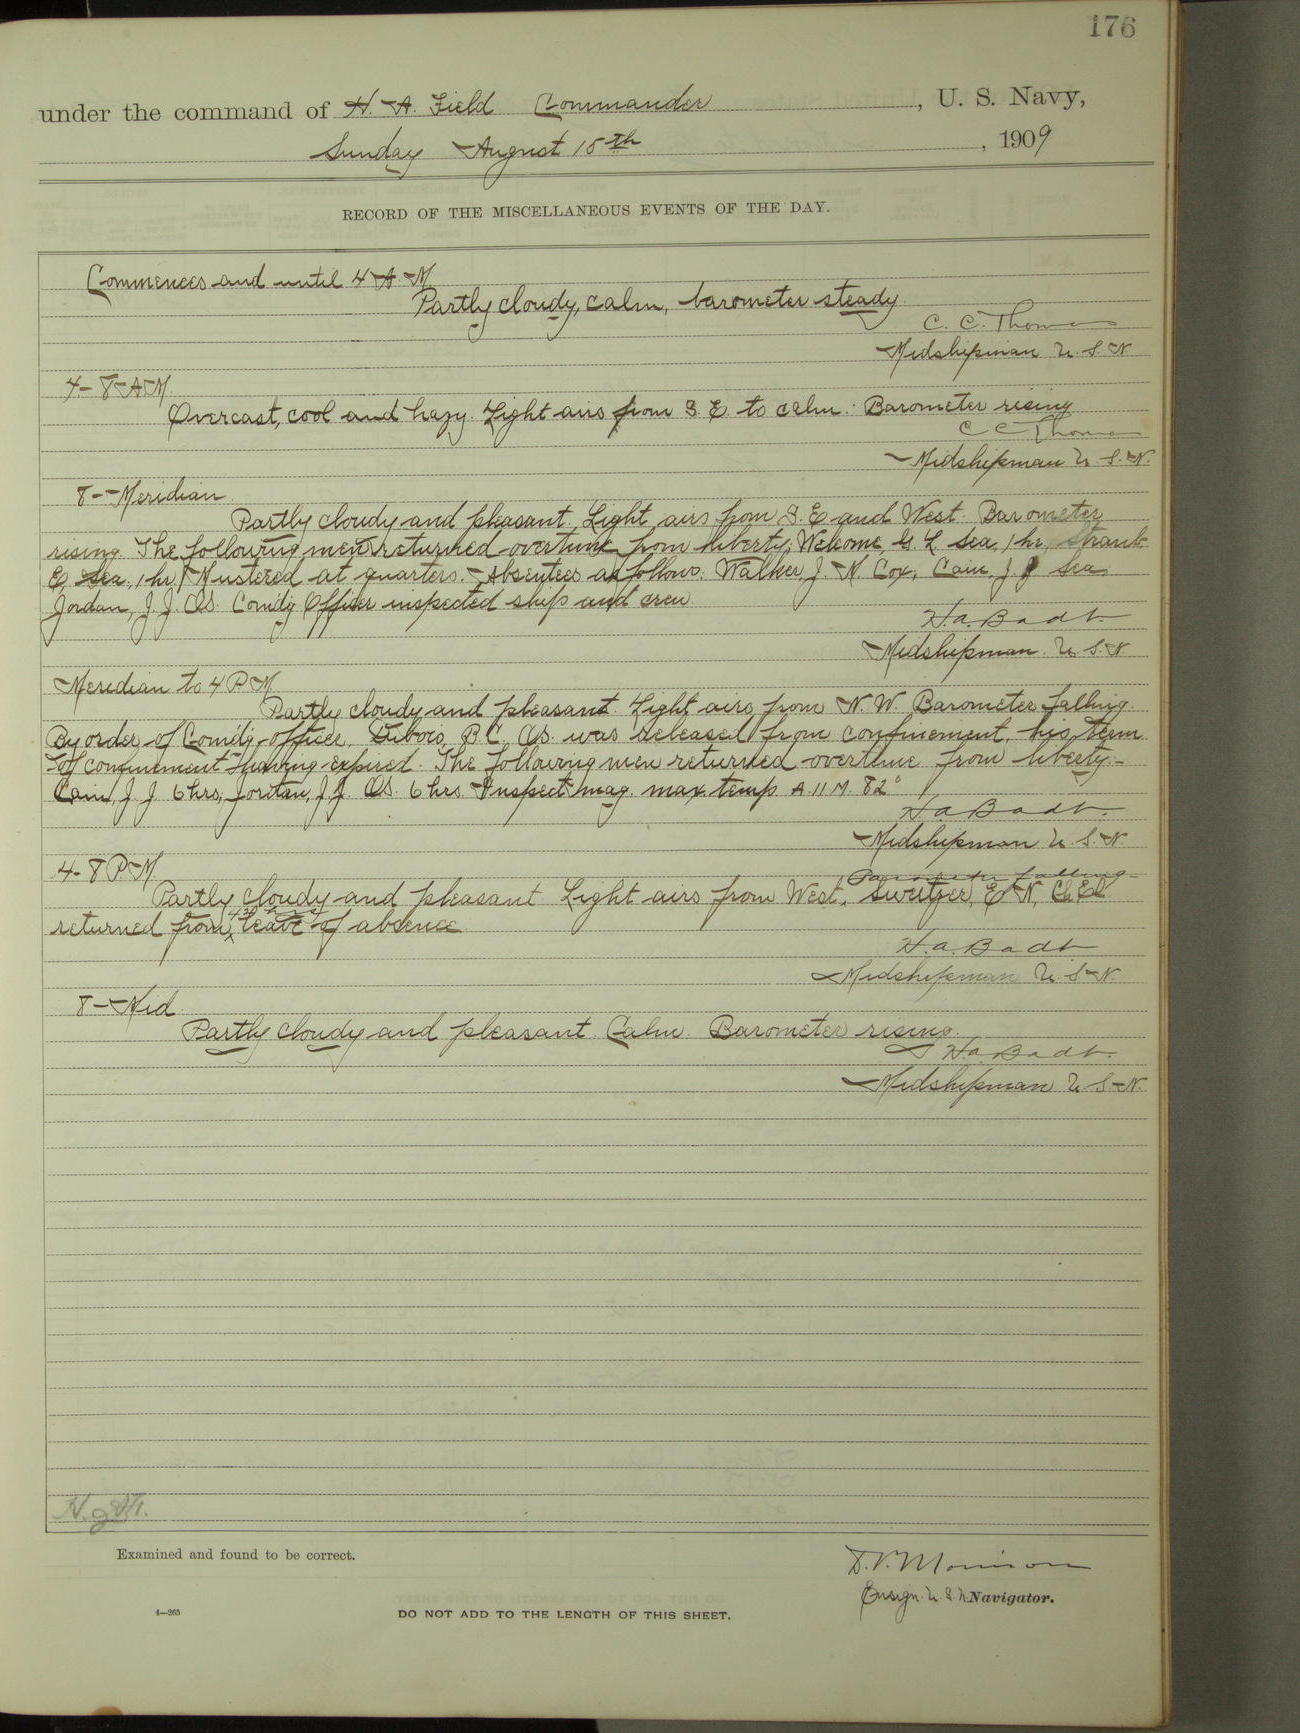 176
under the command of H. A. Field Commander, U. S. Navy,
Sunday August 15th, 1909
RECORD OF THE MISCELLANEOUS EVENTS OF THE DAY.
Commences and until 4 A M
Partly cloudy, calm, barometer steady.
C. C. Thomas
Midshipman U. S. N.
4-8 A M
Overcast, cool and hazy. Light airs from S. E. to calm. Barometer rising
C C Thomas
Midshipman U. S. N.
8-Meridian.
Partly cloudy and pleasant. Light airs from S. E and West. Barometer
rising. The following men returned overtime from liberty: Welcome, G. L. Sea, 1 hr, Straub
E, Sea. 1 hr. Mustered at quarters. Absentees as follows: Walker J. N. Cox, Cain, J J Sea
Jordan, J. J. OS. Comd'g Officer inspected ship and crew.
H. a. Badt
Midshipman U. S. N
Meridian to 4 P M
Partly cloudy and pleasant. Light airs from N. W. Barometer falling.
By order of Comd'g officer, B. C. OS. was released from confinement, his term
of confinement having expired. The following men returned overtime from liberty:-
Cain, J J 6 hrs, Jordan, J J. OS. 6 hrs. Inspect mag. max temp. A 11 M. 82°
H a Badt.
Midshipman U. S. N.
4-8 P M.
Barometer falling
Partly cloudy and pleasant Light airs from West. Sweitzer, E. N, Ch. El
returned from leave of absence.
H. a. Badt
Midshipman U. S. N.
8-Mid.
Partly cloudy and pleasant. Calm. Barometer rising.
H. a. Badt.
Midshipman U. S. N.
Examined and found to be correct.
D. V. Morrison
Ensign U. S. N. Navigator.
4—265
DO NOT ADD TO THE LENGTH OF THIS SHEET.